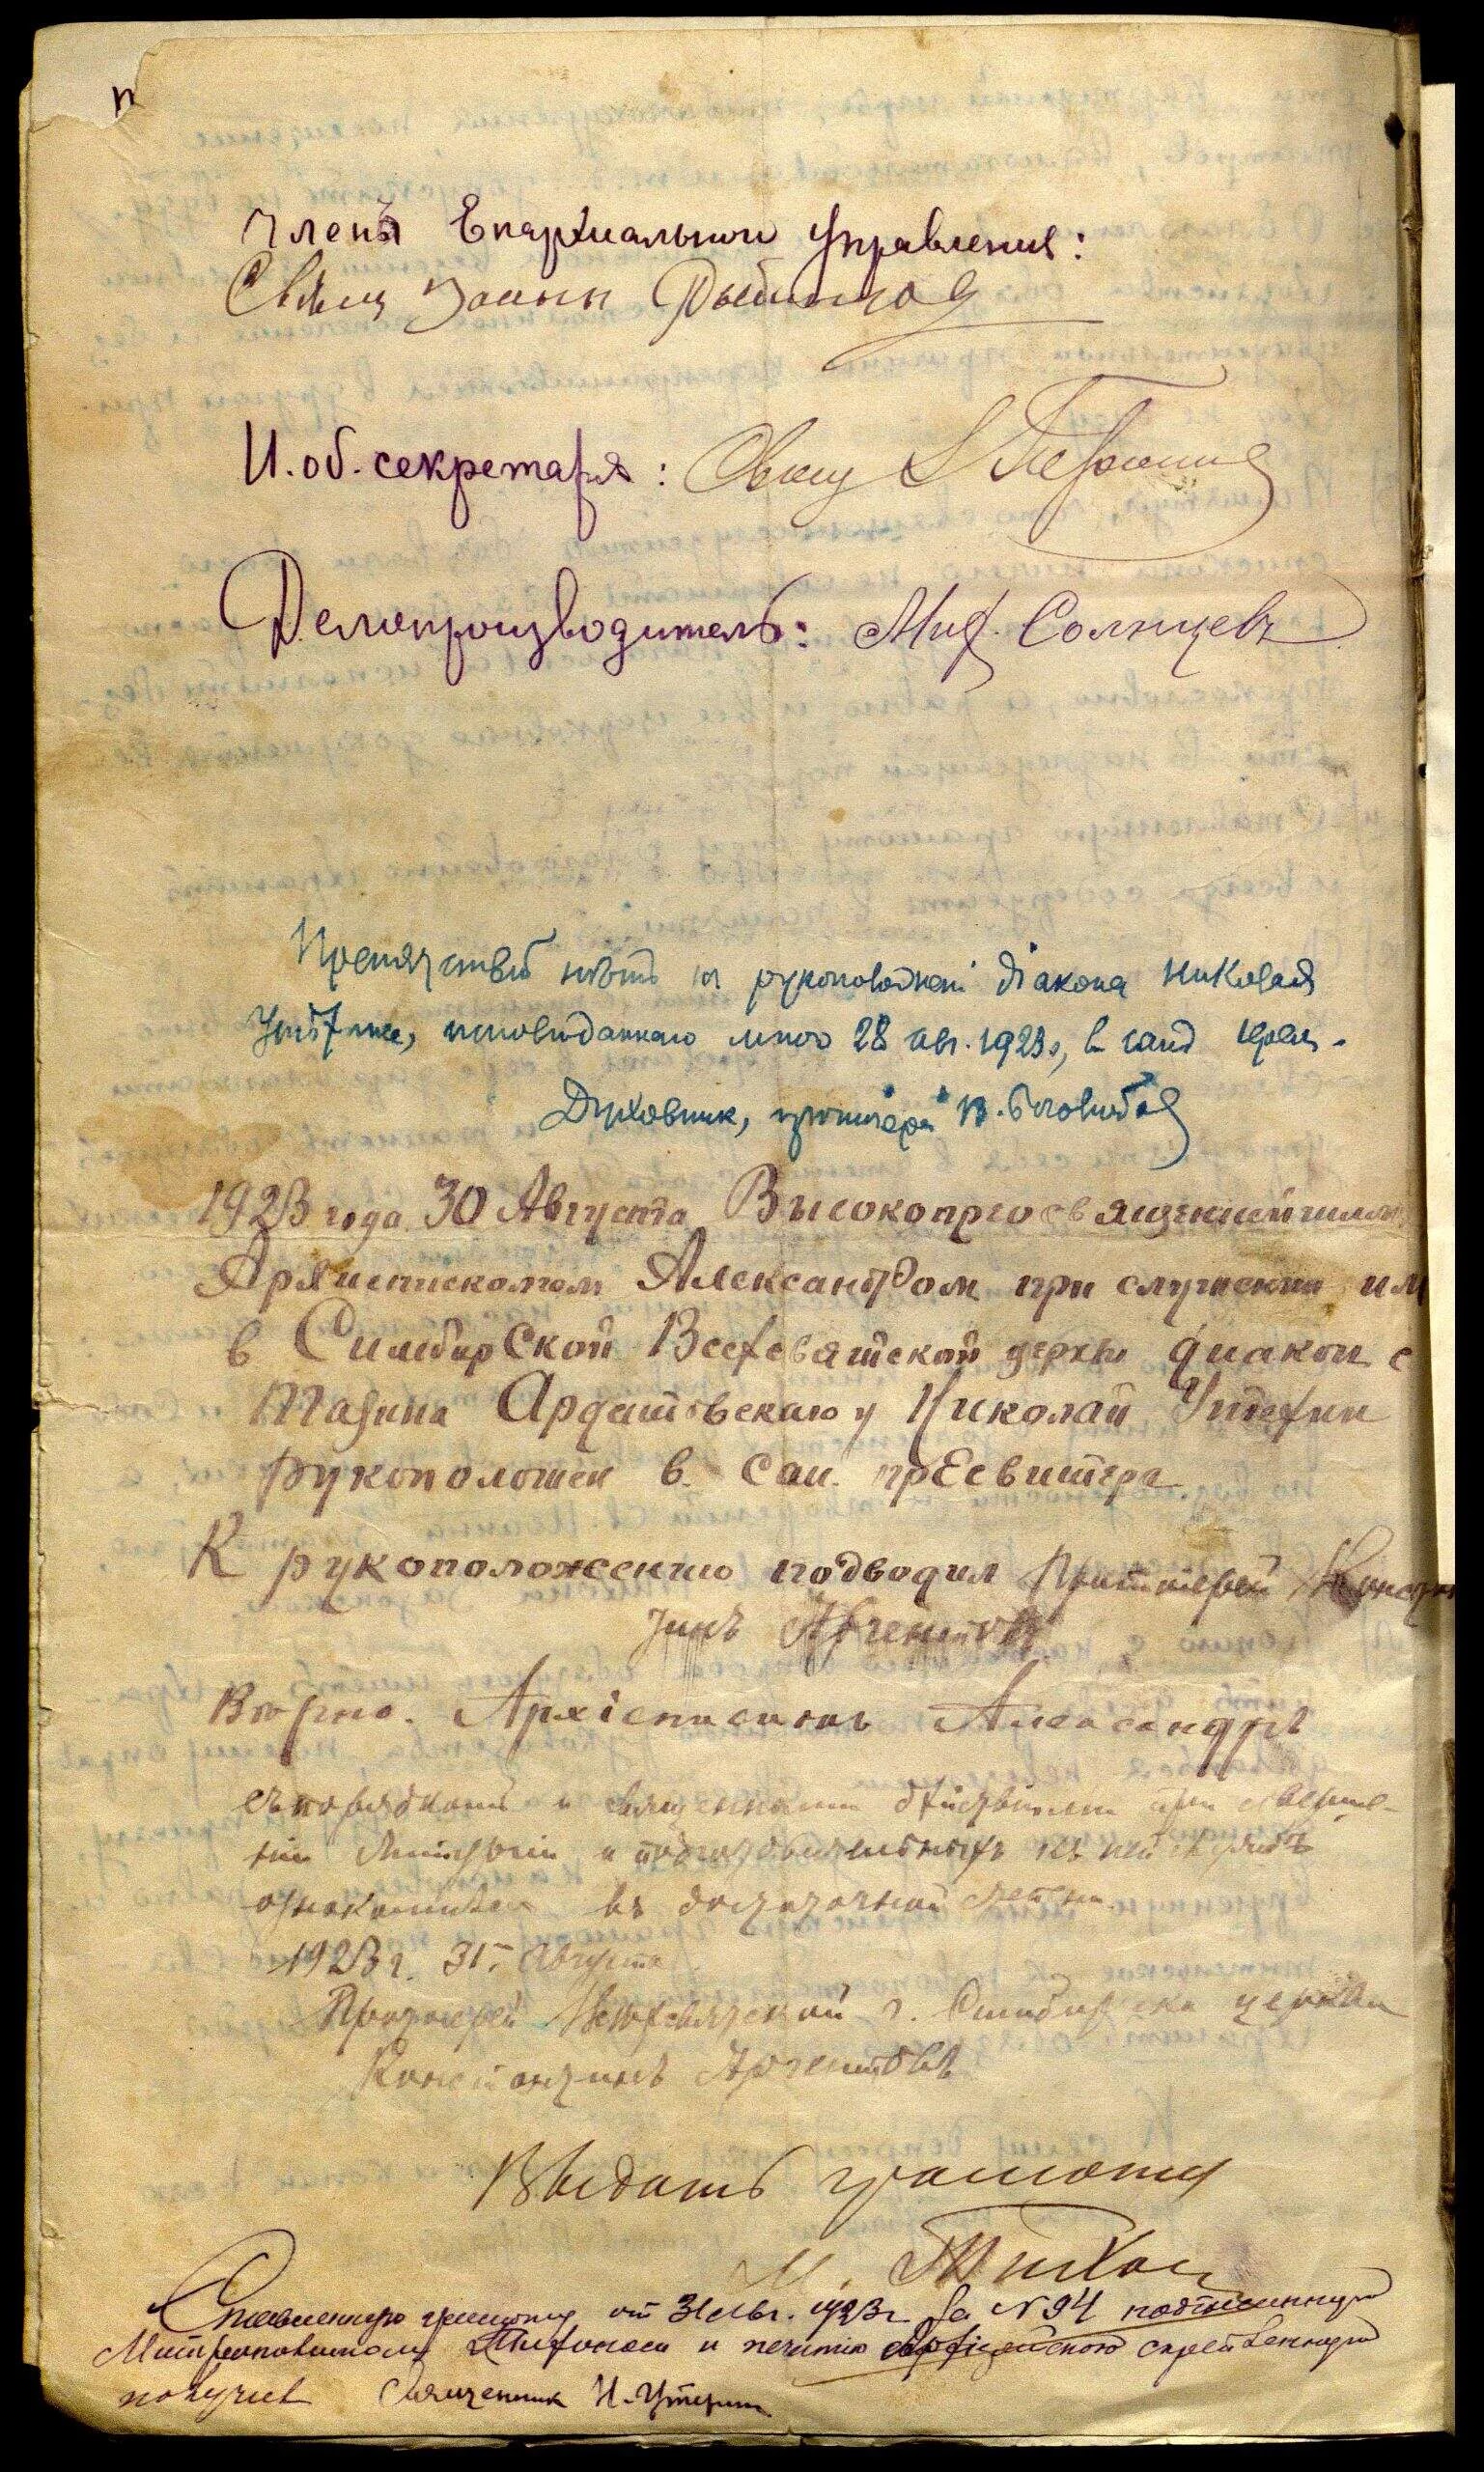 Члены Епархиального Управления:
Свящ Иоанн
И. об. секретаря: Свящ
Делопроизводитель: Миф. Солнцевъ
Препятствiй нѣтъ къ рукоположенi дiакона Николая
исповѣданнаго мною 28 авг. 1923г, в санъ
Духовник, протоiерей В.
1923 года 30 Августа Высокопреосвященнейшим
Архиепископом Александром при служении им
в Симбирской Всехсвятской церкви диакон с
Ардатовскаго у Николай Утехин
рукоположен в сан пресвитера
К рукоположению подводил Протоиерей Констан
тинъ Аргентов
Вѣрно. Архiепископъ Александръ
съ порядкомъ и священными дѣйствiями при соверше-
нiи Литургiи и подготовительныхъ къ ней
ознакомился въ достаточной степени
1923 г. 31 Августа
Протоиерей Всехсвятской г. Симбирска церкви
Константинъ Аргентовъ
Выдать грамоту
М. Тихон
Ставленную грамоту от 31 Авг. 1923г за № 94 подписанную
Митрополитом Тихоном и печатью скрепленную
получил Священник Н. Утехин